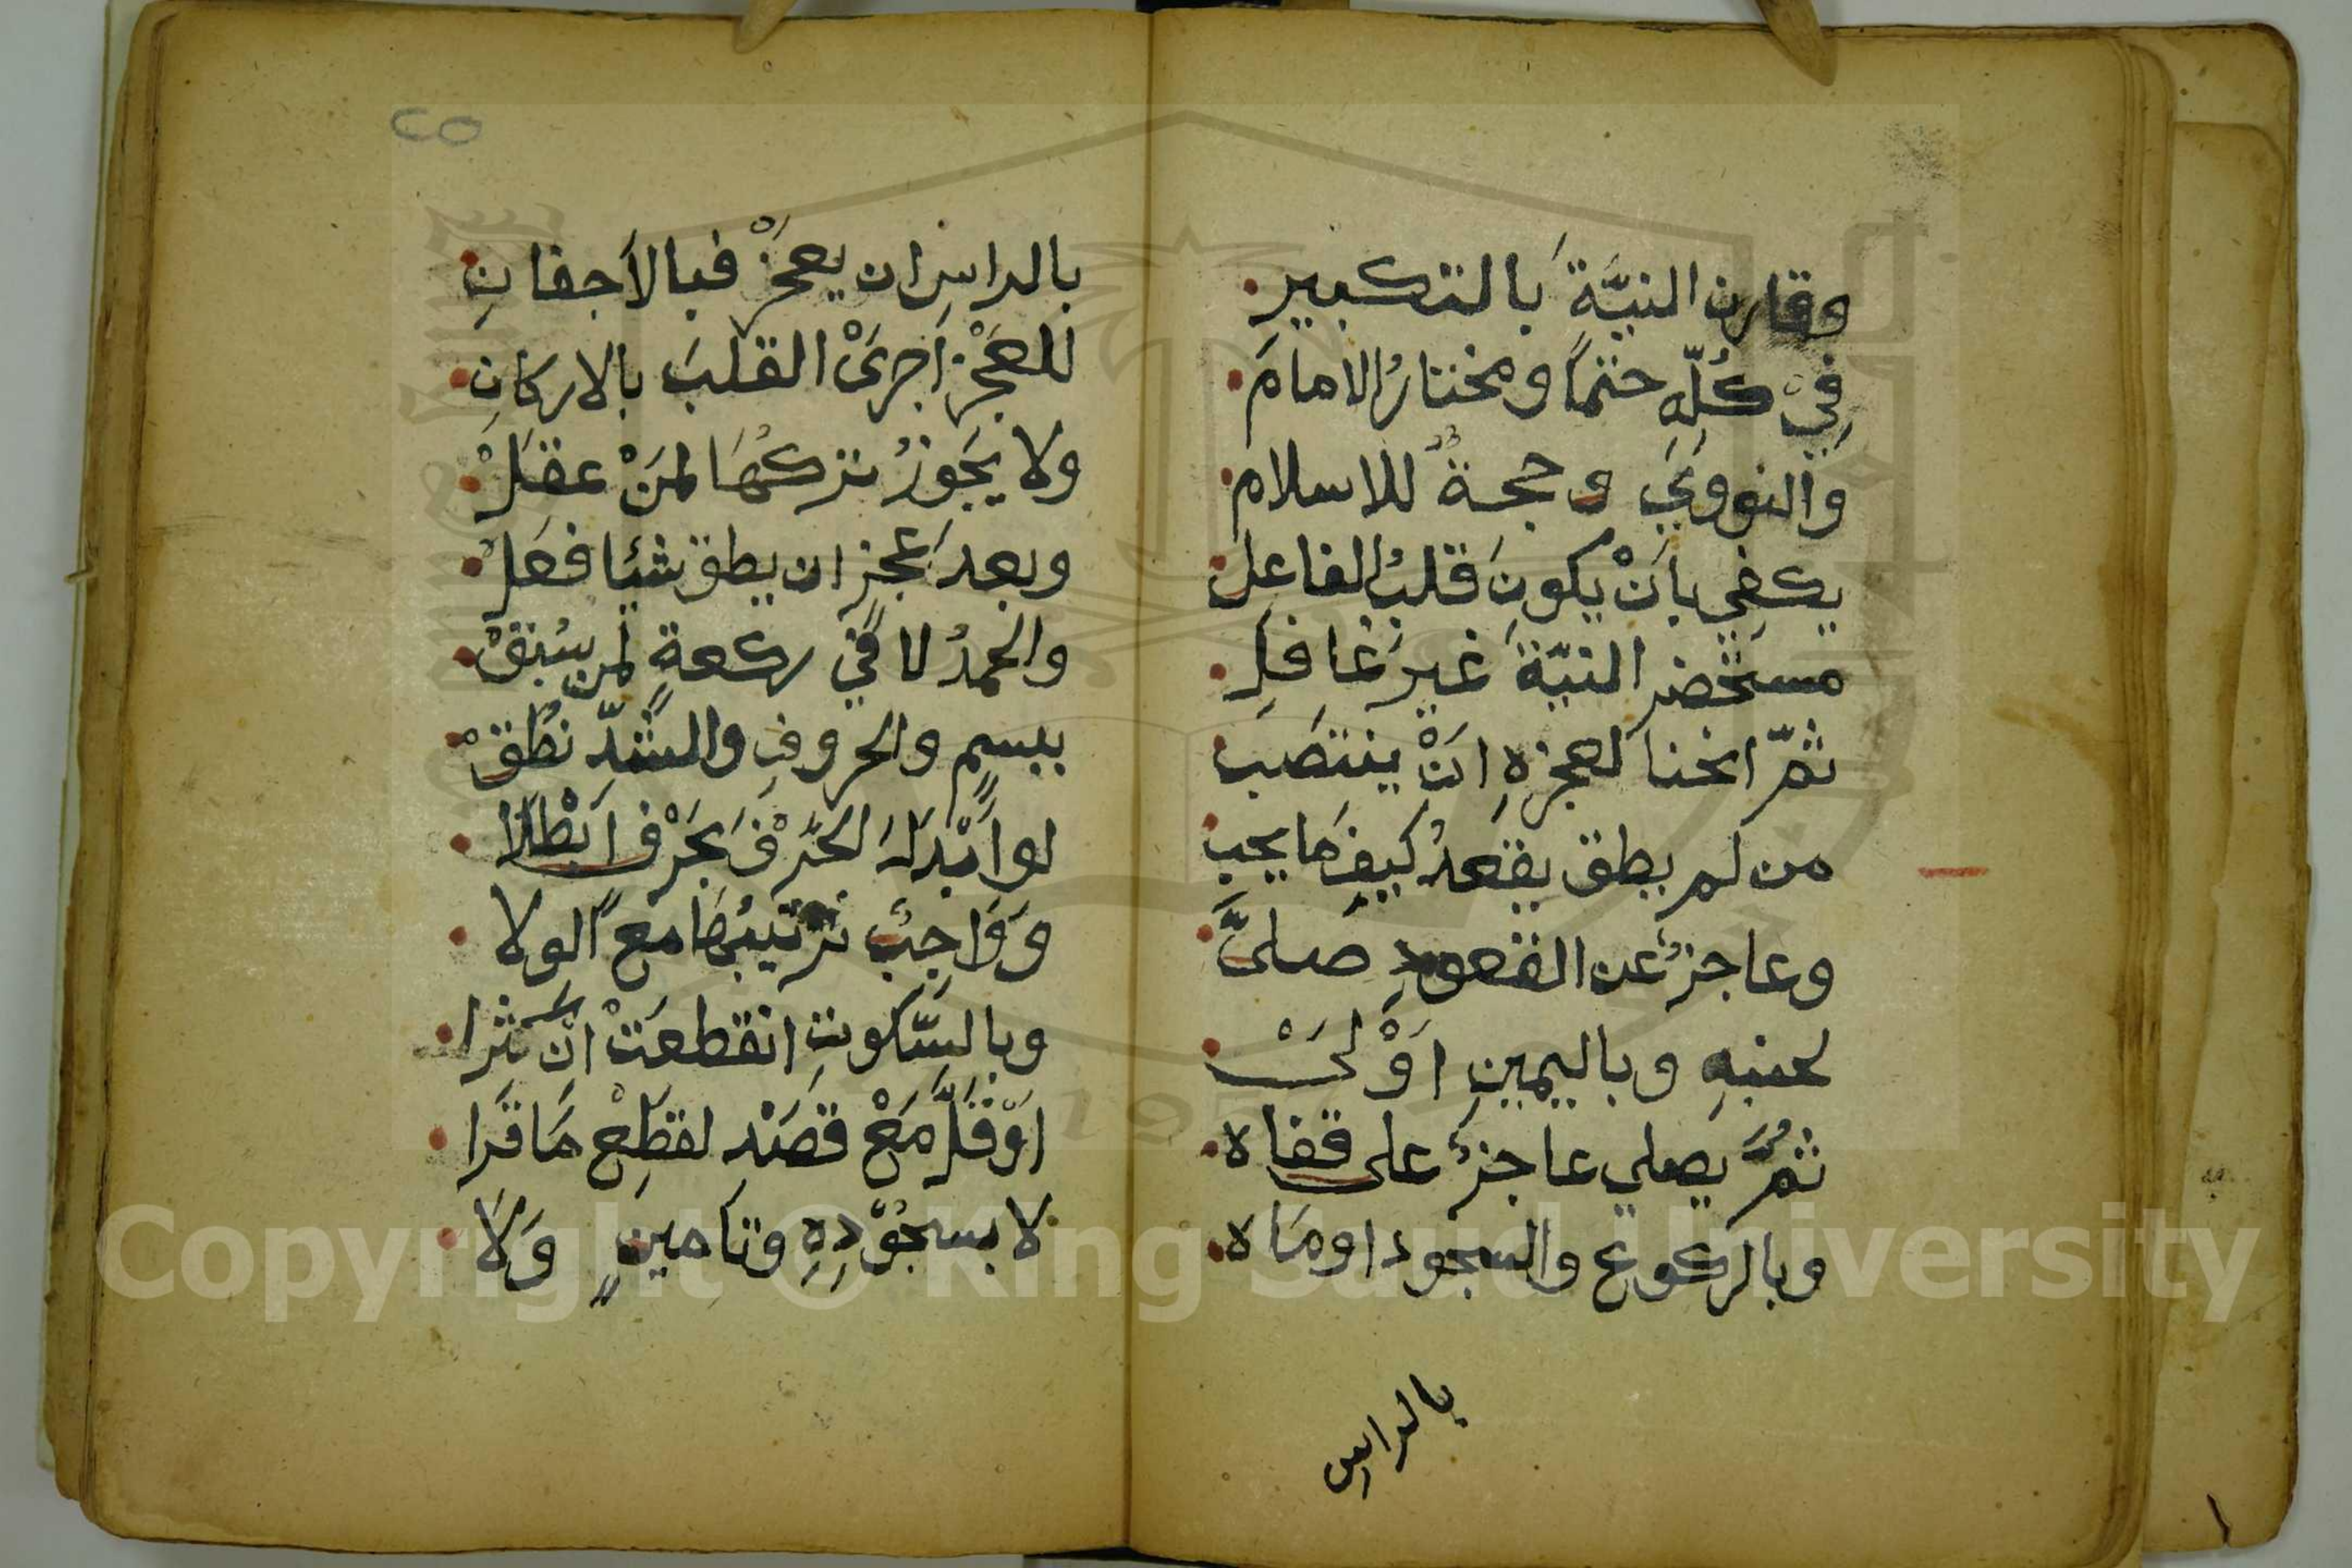 وقارن النيَّةَ بالتكبير
فِيْ كُلِّهِ حتمًا ومختارُ الامامَ
والنووِيّ وحجةٌ للاسلام
يكفي بانْ يكونَ قلبُ الفاعِل
مستحضر النيّةَ غيرَ غافِلِ
ثمّ انحنا لعجزهِ انْ ينتصَب
من لم يطق يقعدُ كيفَ مَا يجب
وعاجزٌ عن القعودِ صَلىَّ
لجنبهِ وباليمينِ اوْلىَْ
ثمَُّ يصلي عاجزٌ على قفاه
وبالركوع والسجود اومَاه
بالراسِ
٢٥
بالراسِ ان يعجَزْ فبالاَجفانِ
للعَجْزِ اَجرىَْ القلبَ بالاركانِ
ولا يَجَوزُ تركُهَا لمَنْ عقَلَْ
وبعدَ عَجز ان يطق شيئا فعَل
والحمدُ لا في ركعةٍ لمن سُبقْ
ببسمٍ والحروفِ والشدِّ نُطقْ
لو اَبْدَلَ الحَرْفَ بحَرْفٍ اَبْطَلَا
وَوَاجِبٌ ترتيبُهَا مَعَ الولا
وبالسَّكوتِ انقطعَتْ انْ كَثرا
اوْ قَلَّ مَعْ قصَْدٍ لقطِعْ مَا قَرا
لا بسجُوْدِهِ وتاَمينٍ وَلاَ
Copyright © King Saud University
1957